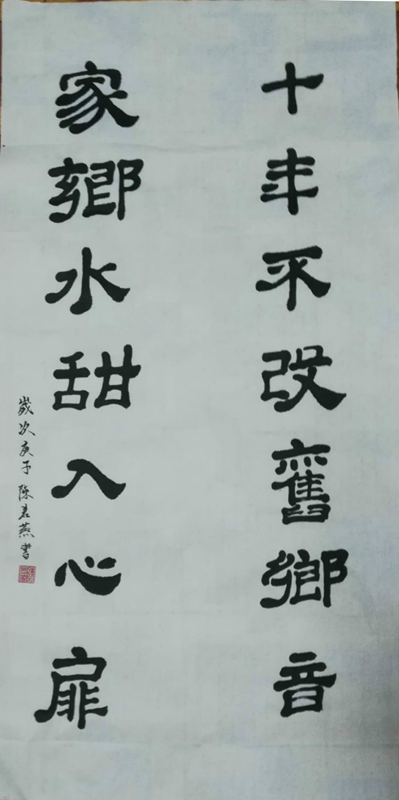 十年不改舊鄉音
家鄉水甜入心扉
歲次庚子 陈君燕書